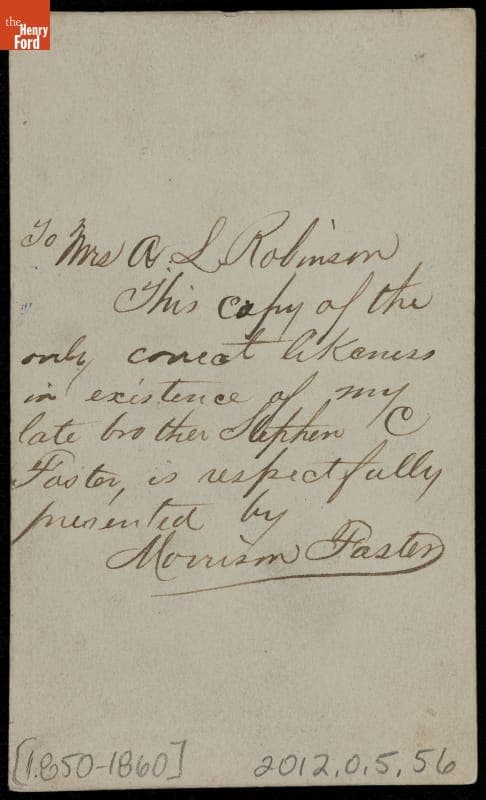 the
Henry
Ford
To Mrs A. L. Robinson
This copy of the
only correct likeness
in existence of my
late brother Stephen C
Foster, is respectfully
presented by
Morrison Foster
[1850-1860]
2012.0.5.56